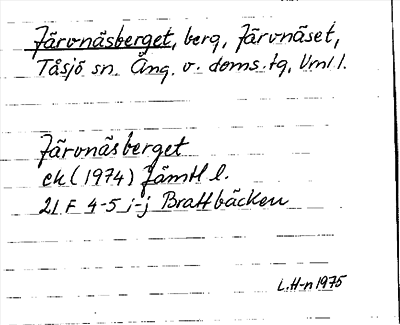 Järvnäsberget, berg, Järvnäset,
Tåsjö sn. Ång. v. doms.tg, Vml l.
Järvnäsberget
ek (1974) Jämtl l.
21 F 4-5 i-j Brattbäcken
L.H-n 1975